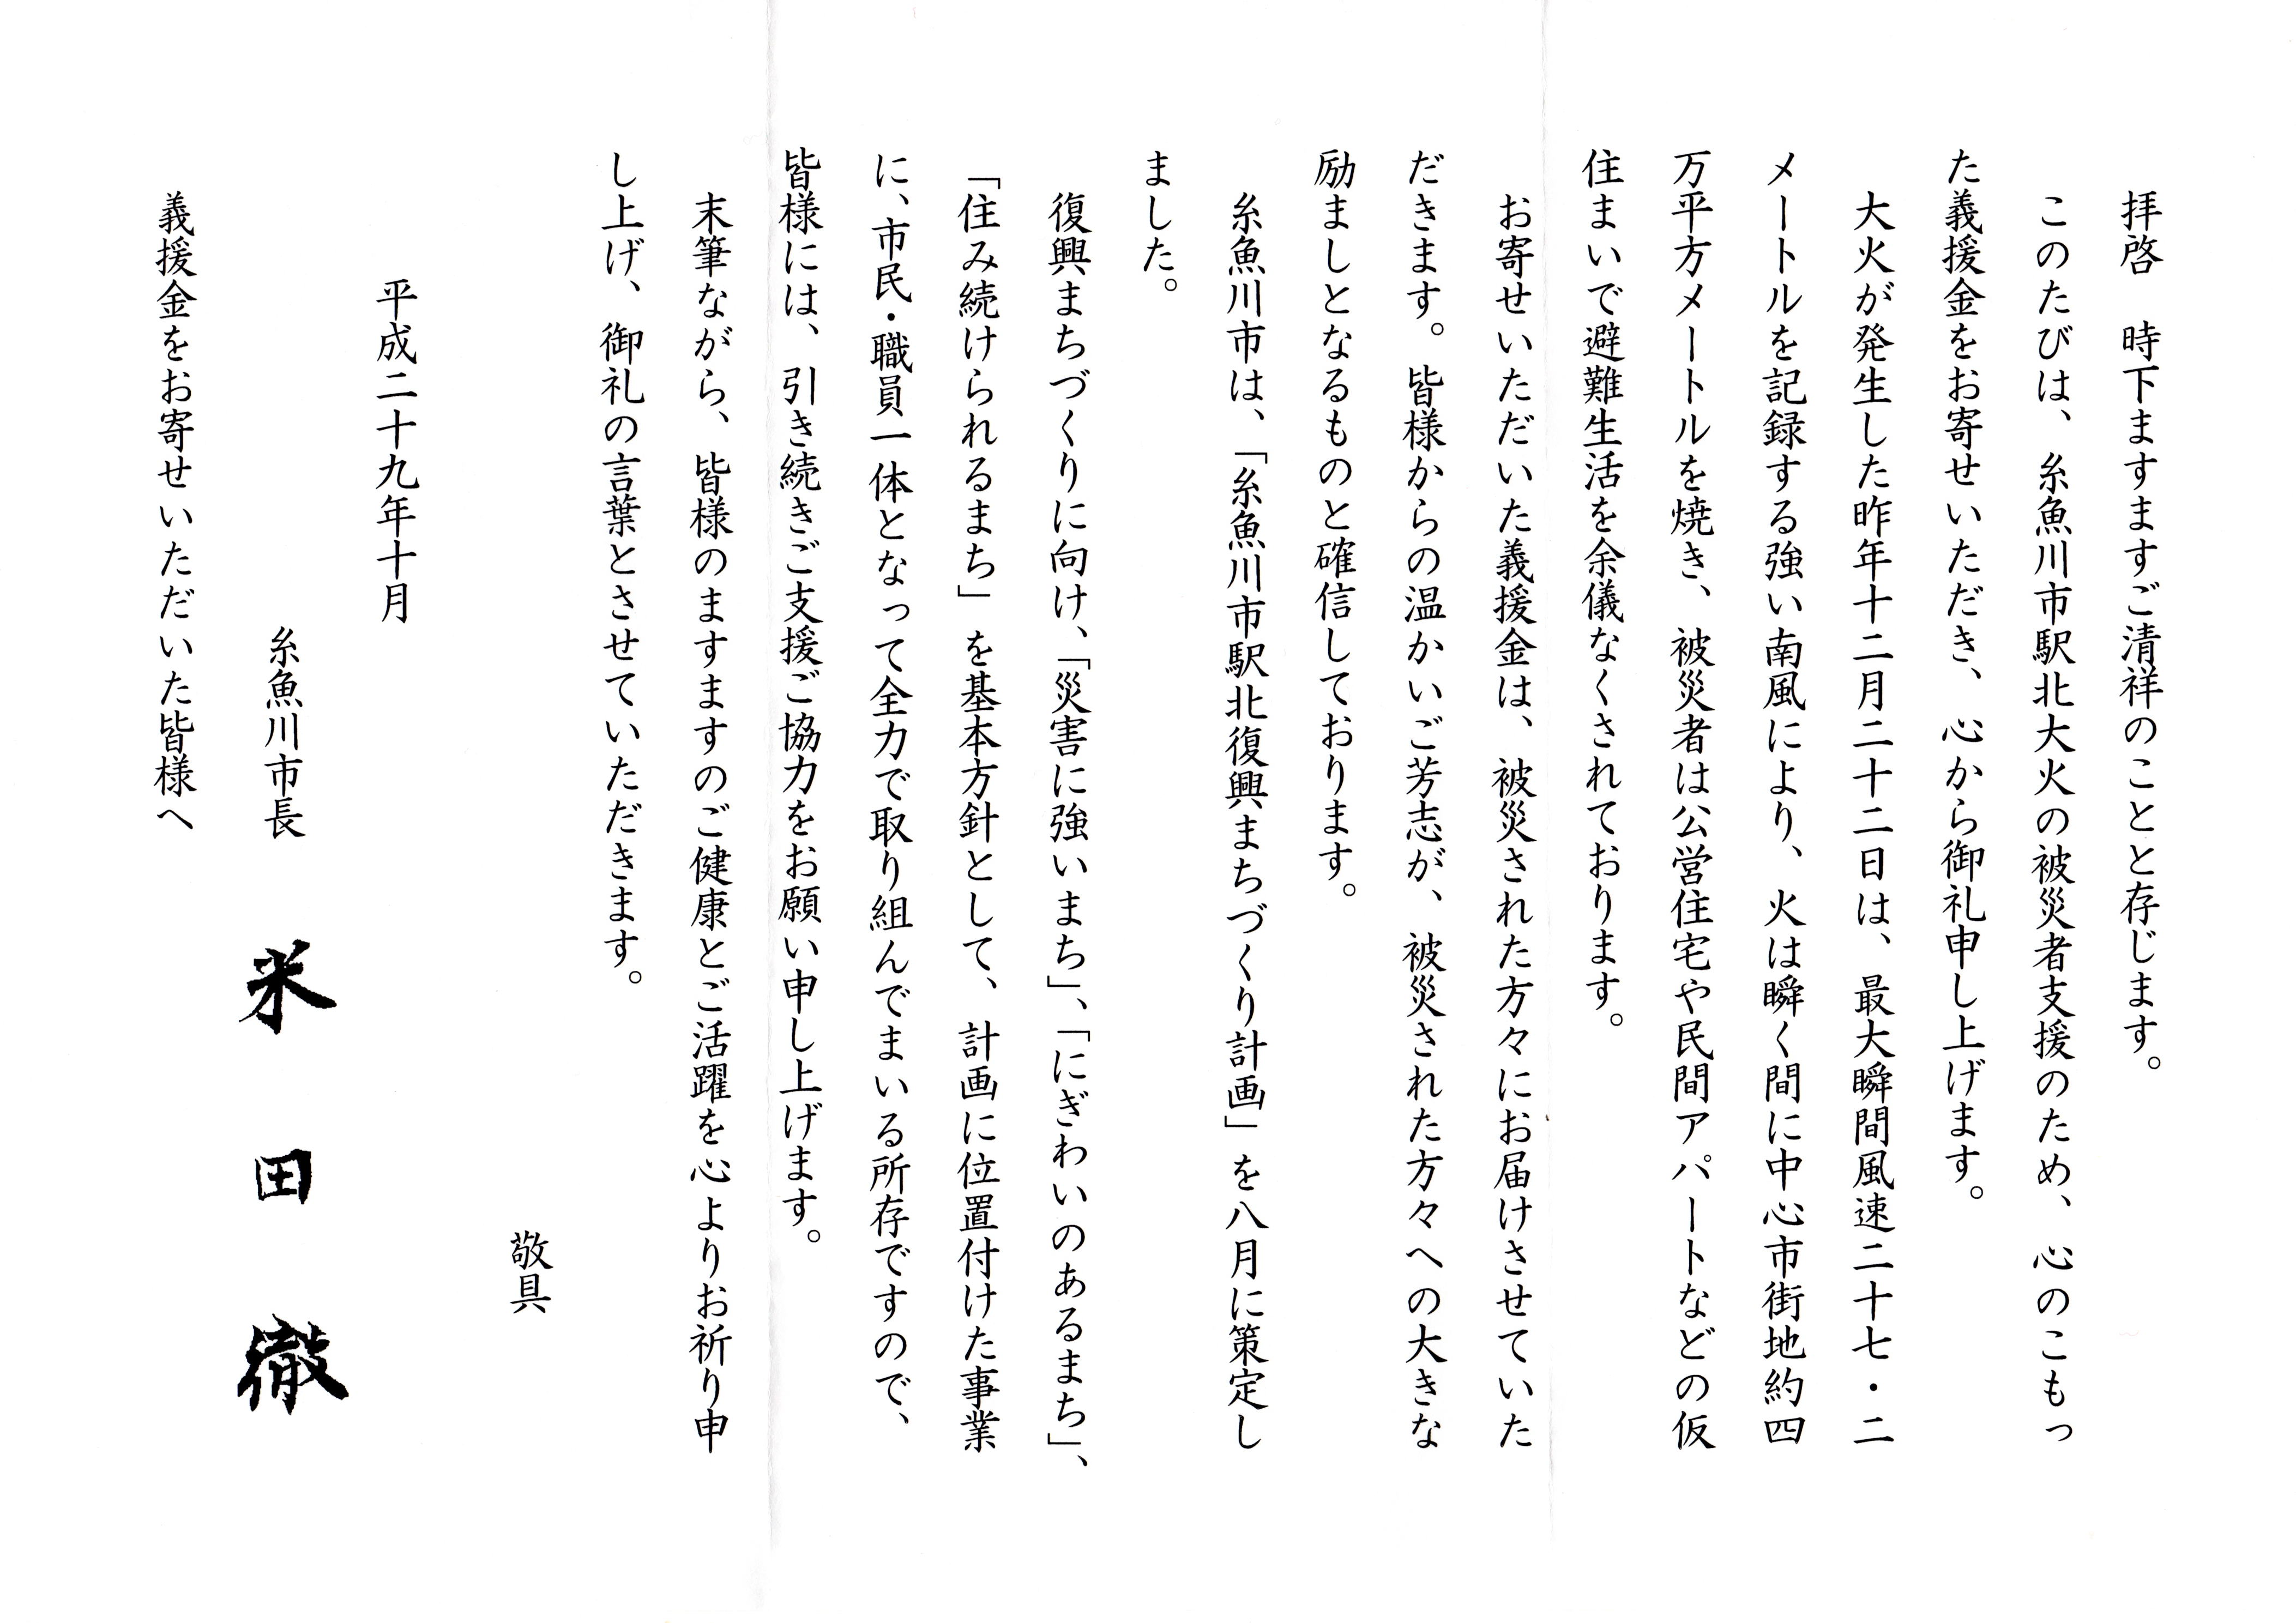 拝啓　時下ますますご清祥のことと存じます。
このたびは、糸魚川市駅北大火の被災者支援のため、心のこもっ
た義援金をお寄せいただき、心から御礼申し上げます。
大火が発生した昨年十二月二十二日は、最大瞬間風速二十七・二
メートルを記録する強い南風により、火は瞬く間に中心市街地約四
万平方メートルを焼き、被災者は公営住宅や民間アパートなどの仮
住まいで避難生活を余儀なくされております。
お寄せいただいた義援金は、被災された方々にお届けさせていた
だきます。皆様からの温かいご芳志が、被災された方々への大きな
励ましとなるものと確信しております。
糸魚川市は、「糸魚川市駅北復興まちづくり計画」を八月に策定し
ました。
復興まちづくりに向け、「災害に強いまち」、「にぎわいのあるまち」、
「住み続けられるまち」を基本方針として、計画に位置付けた事業
に、市民・職員一体となって全力で取り組んでまいる所存ですので、
皆様には、引き続きご支援ご協力をお願い申し上げます。
末筆ながら、皆様のますますのご健康とご活躍を心よりお祈り申
し上げ、御礼の言葉とさせていただきます。
敬具
平成二十九年十月
糸魚川市長　米田徹
義援金をお寄せいただいた皆様へ